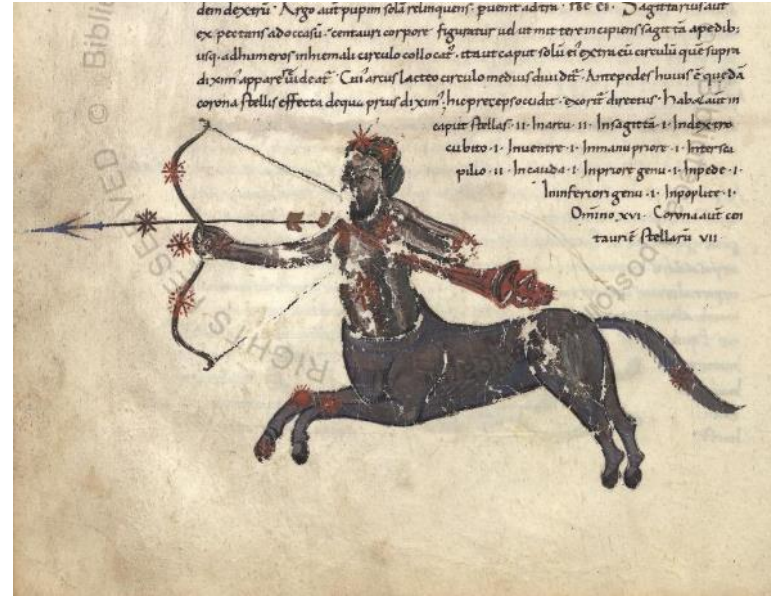 dem dextrū · Argo aūt pupim solā relinquens · puenit ad tra · Sagittarius aūt
expectans ad occasū · centauri corpore figuratur uelut mittere incipiens sagittā a pedib;
usq· ad humeros in hiemali circulo collocat̄ · ita ut caput solū ei extra eū circulū quē supra
diximˀ apparere uideat̄ · Cuiˀ arcus lacteo circulo mediusdiuidit̄ · Ante pedes huius ē quedā
corona stellis effecta de qua prius diximˀ · hic preceps occidit · exorit̄ directus · Habet aūt in
capite stellas · II · In arcu · II · In sagitta · I · In dextro
cubito · I · In uentre · I · In manu priore · I · Inter sca
pilio · II · In cauda · I · In priore genu · I · In pede · I ·
In inferiori genu · I · In poplite · I ·
Omīno XVI · Corona aūt cen
tauri ē stellarū VII
© Biblio
RIGHTS RESERVED